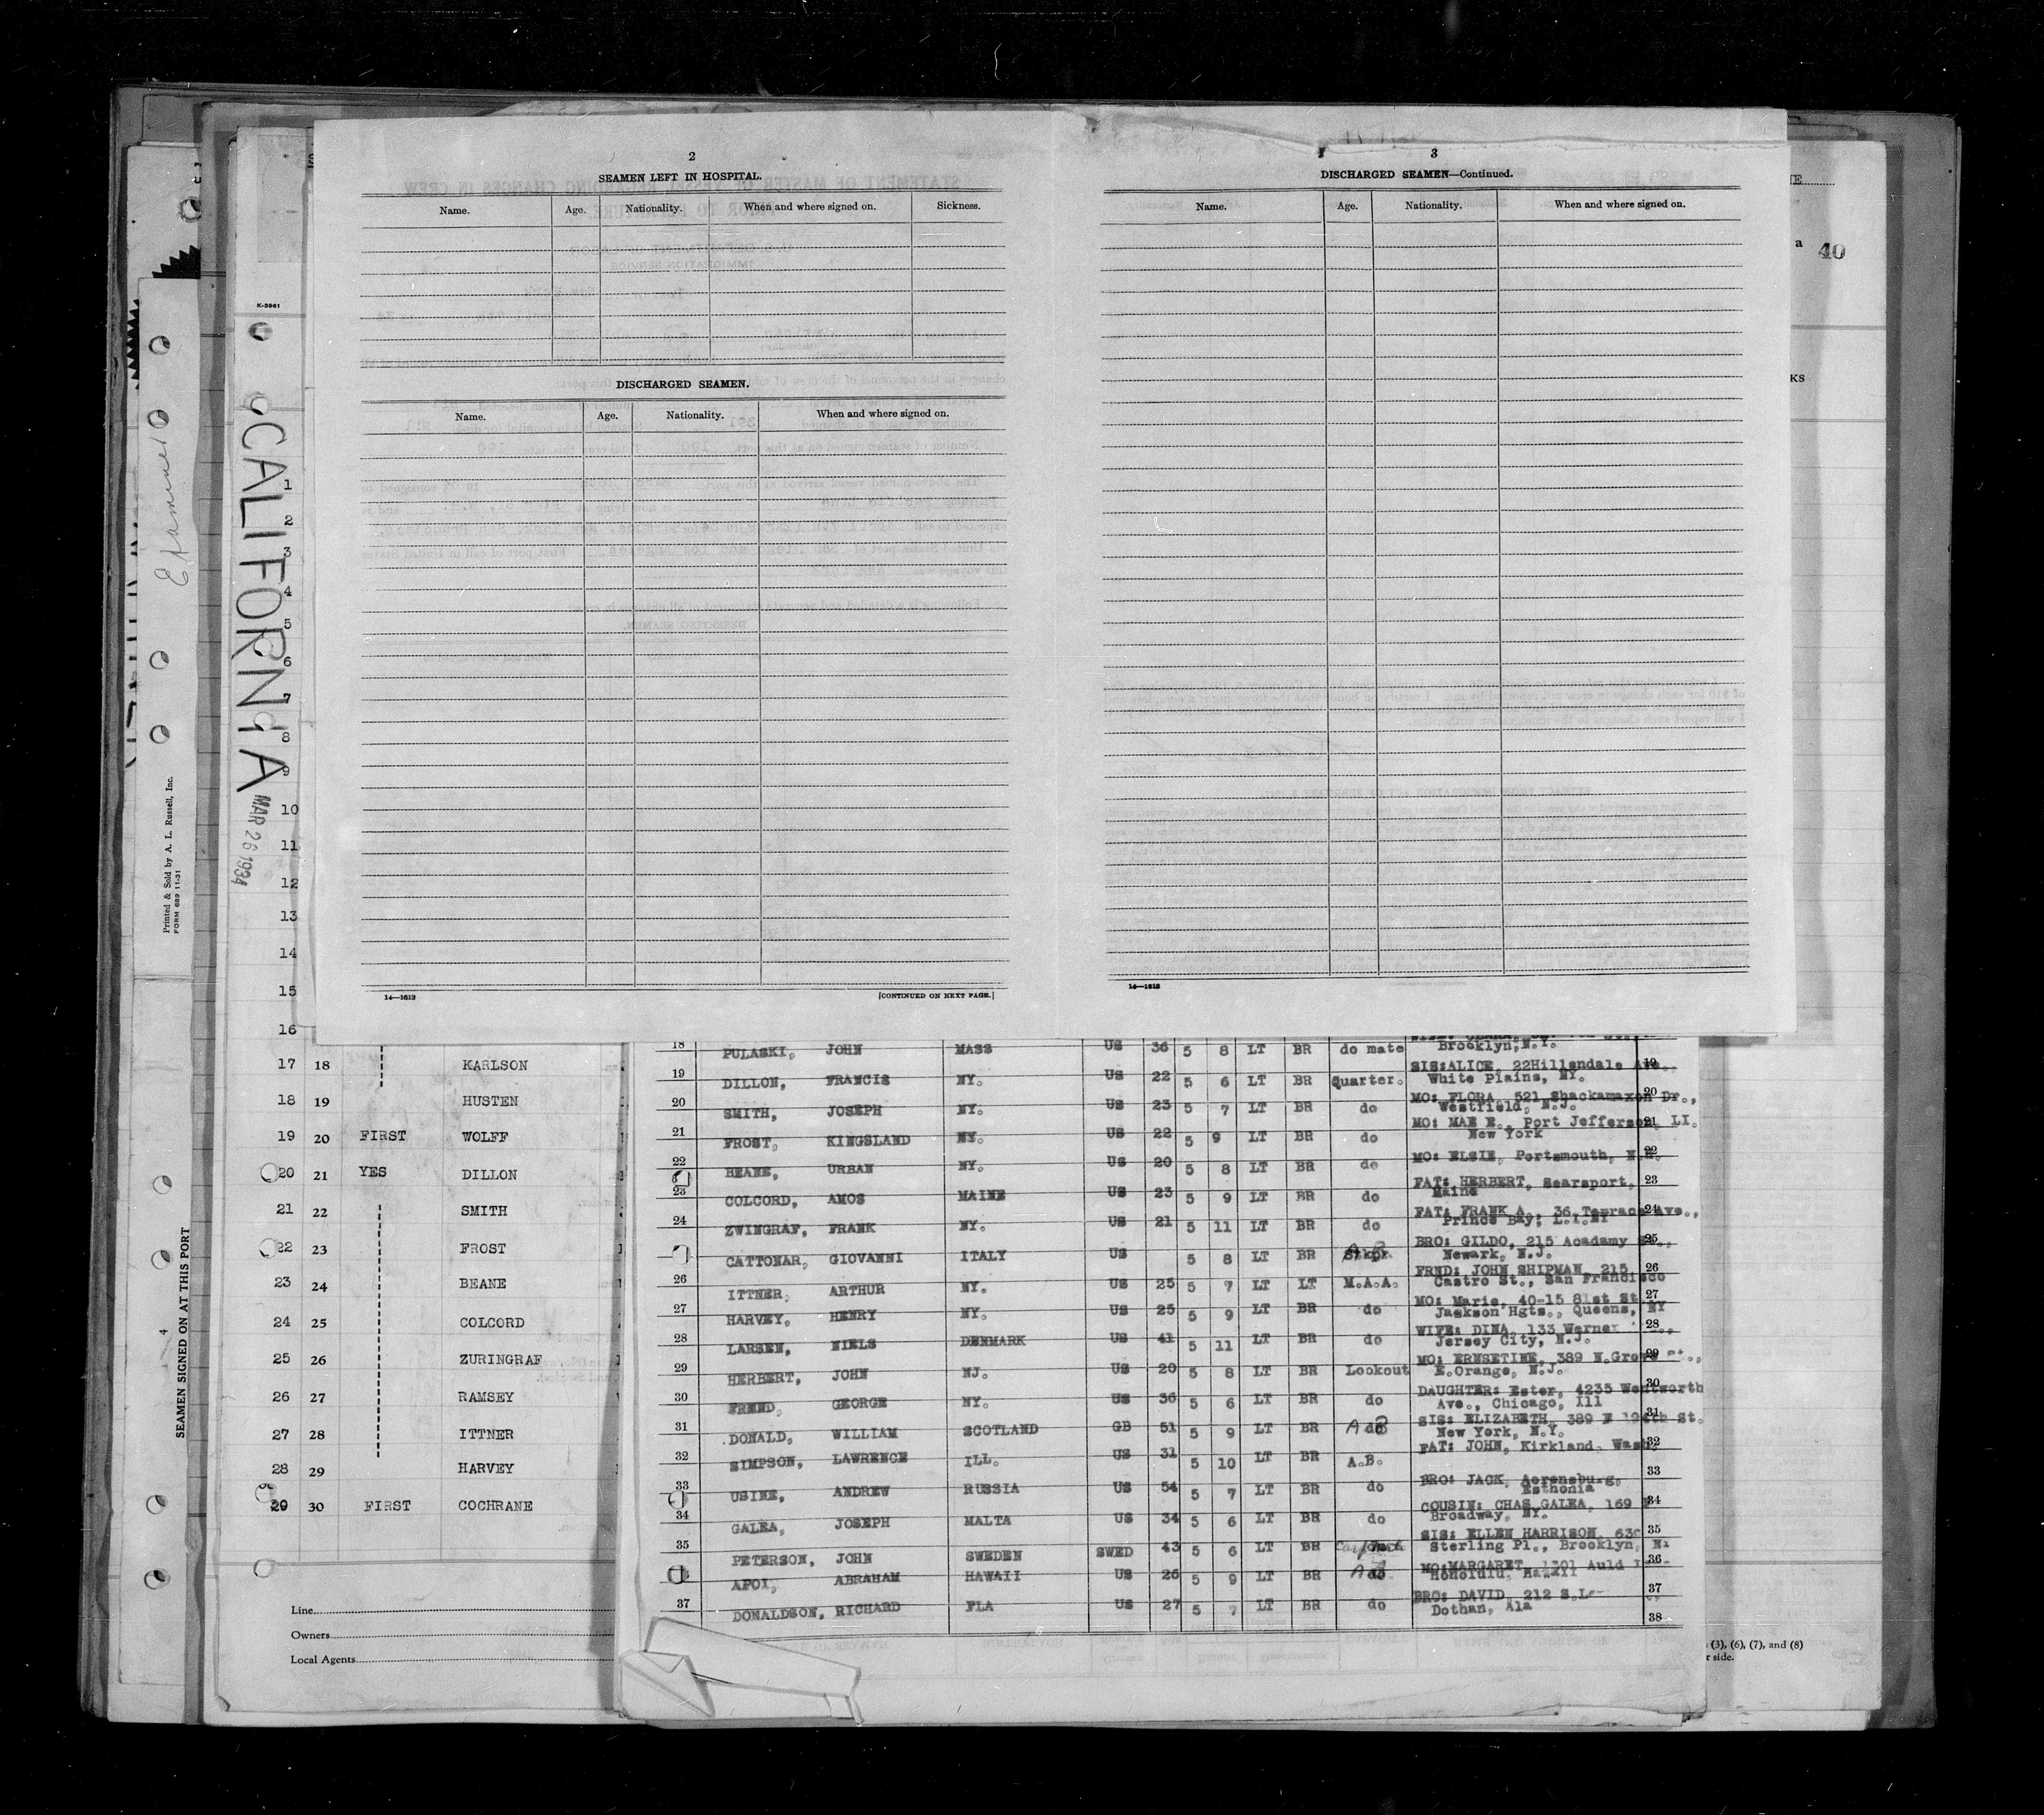 2
SEAMEN LEFT IN HOSPITAL.
Name. Age. Nationality. When and where signed on. Sickness.
DISCHARGED SEAMEN.
Name. Age. Nationality. When and where signed on.
14—1613 [CONTINUED ON NEXT PAGE.]
3
DISCHARGED SEAMEN—Continued.
Name. Age. Nationality. When and where signed on.
14—1613
a 40
KS
K-3961
Examined
CALIFORNIA
MAR 26 1934
Printed & Sold by A. L. Russell, Inc.
FORM 689 11-31
SEAMEN SIGNED ON AT THIS PORT
4
1
2
3
4
5
6
7
8
9
10
11
12
13
14
15
16
17 18 KARLSON
18 19 HUSTEN
19 20 FIRST WOLFF
20 21 YES DILLON
21 22 SMITH
22 23 FROST
23 24 BEANE
24 25 COLCORD
25 26 ZURINGRAF
26 27 RAMSEY
27 28 ITTNER
28 29 HARVEY
29 30 FIRST COCHRANE
Line
Owners
Local Agents
18 PULASKI, JOHN MASS US 36 5 8 LT BR do mate
Brooklyn, N.Y.
19 DILLON, FRANCIS NY. US 22 5 6 LT BR Quarter. SIS: ALICE, 22 Hillendale Ave. 19
White Plains, NY.
20 SMITH, JOSEPH NY. US 23 5 7 LT BR do MO: FLORA, 521 Shackamaxon Dr., 20
Westfield, N.J.
21 FROST, KINGSLAND NY. US 22 5 9 LT BR do MO: MAE E., Port Jefferson, LI. 21
New York
22 BEANE, URBAN NY. US 20 5 8 LT BR do MO: ELSIE, Portsmouth, N.H. 22
23 COLCORD, AMOS MAINE US 23 5 9 LT BR do FAT: HERBERT, Searsport, 23
Maine
24 ZWINGRAF, FRANK NY. US 21 5 11 LT BR do FAT: FRANK A., 36 Terrace Ave., 24
Prince Bay, L.I. NY
CATTONAR, GIOVANNI ITALY US 5 8 LT BR BRO: GILDO, 215 Acadamy 25
Newark, N.J.
26 ITTNER, ARTHUR NY. US 25 5 7 LT LT M.A.A. FRND: JOHN SHIPMAN, 215 26
Castro St., San Francisco
27 HARVEY, HENRY NY. US 25 5 9 LT BR do MO: Marie, 40-15 81st St. 27
Jackson Hgts., Queens, NY
28 LARSEN, NIELS DENMARK US 41 5 11 LT BR do WIFE: DINA, 133 Werner 28
Jersey City, N.J.
29 HERBERT, JOHN NJ. US 20 5 8 LT BR Lookout MO: ERNSETINE, 389 N. Grove St., 29
E. Orange, N.J.
30 FREND, GEORGE NY. US 36 5 6 LT BR do DAUGHTER: Ester, 4235 Wentworth 30
Ave., Chicago, Ill
31 DONALD, WILLIAM SCOTLAND GB 51 5 9 LT BR AB SIS: ELIZABETH, 389 E 194th St. 31
New York, N.Y.
32 SIMPSON, LAWRENCE ILL. US 31 5 10 LT BR A.B. FAT: JOHN, Kirkland, Wash. 32
33 USINE, ANDREW RUSSIA US 54 5 7 LT BR do BRO: JACK, Aerensburg, 33
Esthonia
34 GALEA, JOSEPH MALTA US 34 5 6 LT BR do COUSIN: CHAS GALEA, 169 34
Broadway, NY.
35 PETERSON, JOHN SWEDEN SWED 43 5 6 LT BR SIS: ELLEN HARRISON, 630 35
Sterling Pl., Brooklyn, N
APOI, ABRAHAM HAWAII US 26 5 9 LT BR MO: MARGARET, 1301 Auld 36
Honolulu, Hawaii
37 DONALDSON, RICHARD FLA US 27 5 7 LT BR do BRO: DAVID, 212 S. 37
Dothan, Ala
38
(3), (6), (7), and (8)
r side.